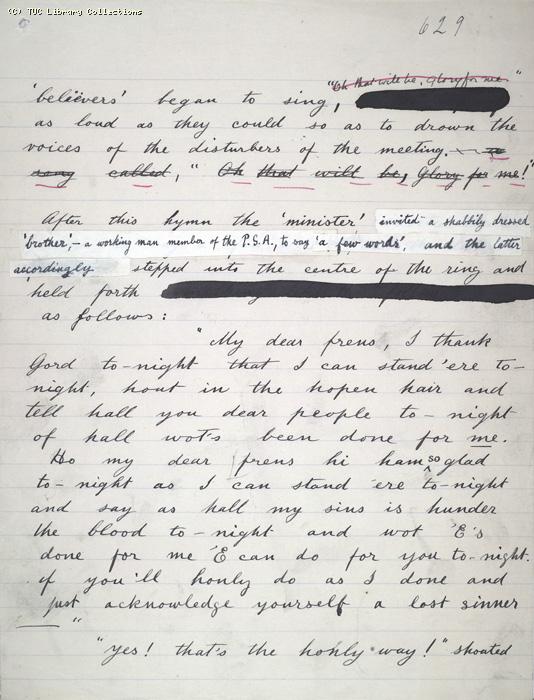 (C) TUC Library Collections
629
"Oh that will be, Glory for me"
'believers' began to sing,
as loud as they could so as to drown the
voices of the disturbers of the meeting.
song called, "Oh that will be, Glory for me!"
After this hymn the 'minister' invited a shabbily dressed
'brother',—a working man member of the P.S.A., to say 'a few words', and the latter
accordingly stepped into the centre of the ring and
held forth
as follows:
"My dear frens, I thank
Gord to-night that I can stand 'ere to-
night, hout in the hopen hair and
tell hall you dear people to-night
of hall wot's been done for me.
Ho my dear frens hi ham so glad
to-night as I can stand 'ere to-night
and say as hall my sins is hunder
the blood to-night and wot 'E's
done for me 'E can do for you to-night.
if you'll honly do as I done and
just acknowledge yourself a lost sinner
—— "
"yes! that's the honly way!" shouted